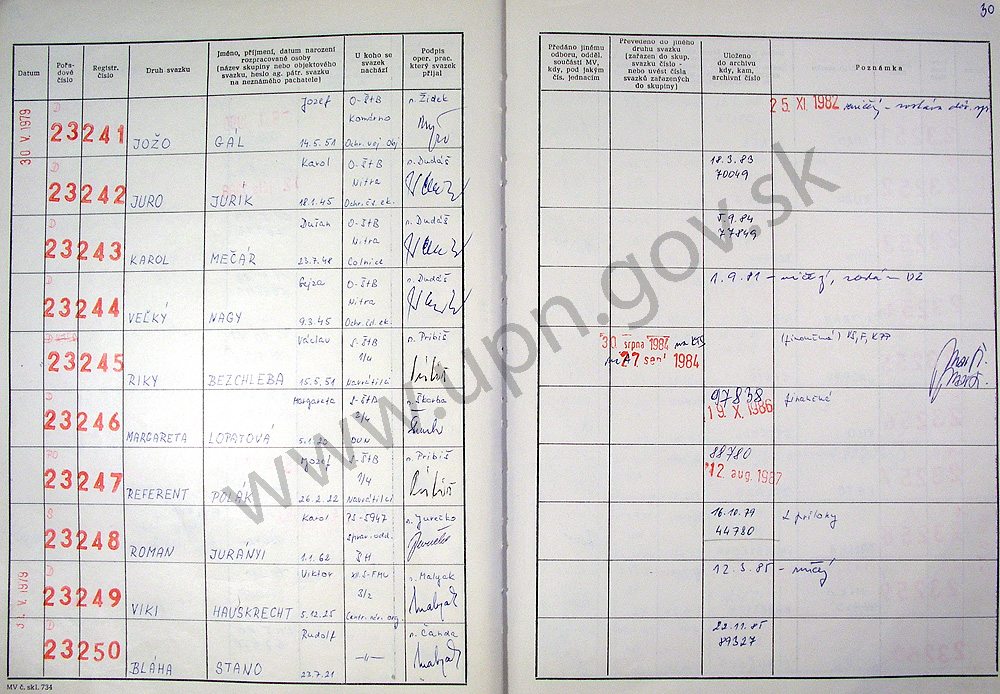 30
Datum
Pořadové číslo
Registr. číslo
Druh svazku
Jméno, příjmení, datum narození rozpracované osoby (název skupiny nebo objektového svazku, heslo ag. pátr. svazku na neznámého pachatele)
U koho se svazek nachází
Podpis oper. prac. který svazek přijal
Předáno jinému odboru, odděl. součásti MV, kdy, pod jakým čís. jednacím
Převedeno do jiného druhu svazku (zařazen do skup. svazku číslo - nebo uvést čísla svazků zařazených do skupiny)
Uloženo do archivu kdy, kam, archivní číslo
Poznámka
30 V. 1979
D
23241 JOŽO GÁL Jozef 14.5.51
O-ŠtB Komárno Ochr. voj. Obj
n. Židek
25. XI. 1982
D
23242 JURO JURIK Karol 18.1.45
O-ŠtB Nitra Ochr. čs. ek.
n. Dudáš
18.3.83
70049
D
23243 KAROL MEČÁR Dušan 23.7.48
O-ŠtB Nitra Colnice
n. Dudáš
5.9.84
77849
D
23244 VEĽKÝ NAGY Gejza 9.3.45
O-ŠtB Nitra Ochr. čs. ek.
n. Dudáš
1.9.81
23245 RIKY BEZCHLEBA Václav 15.5.51
S-ŠtB 1/4 Navrátilci
n. Pribiš
30 srpna 1984
27. sep. 1984
23246 MARGARETA LOPATOVÁ Margareta
S-ŠtB 2/4
n. Škorba
97838
19. X. 1986
finančná
PO
23247 REFERENT POLÁK Jozef 26.2.22
S-ŠtB 1/4 Navrátilci
n. Pribiš
88780
12. aug. 1987
S
23248 ROMAN JURÁNYI Karol 1.1.62
PS-5947 Správ. odd.
n. Jurečko
16.10.79
44780
2 prílohy
31. V. 1979
D
23249 VIKI HAUSKRECHT Viktor 5.12.25
XII.S-FMV 3/2
n. Malyak
12.3.85
D
23250 BLÁHA STANO Rudolf 23.7.21
-"-
n. Čanda
22.11.85
89327
MV č. skl. 734
www.upn.gov.sk